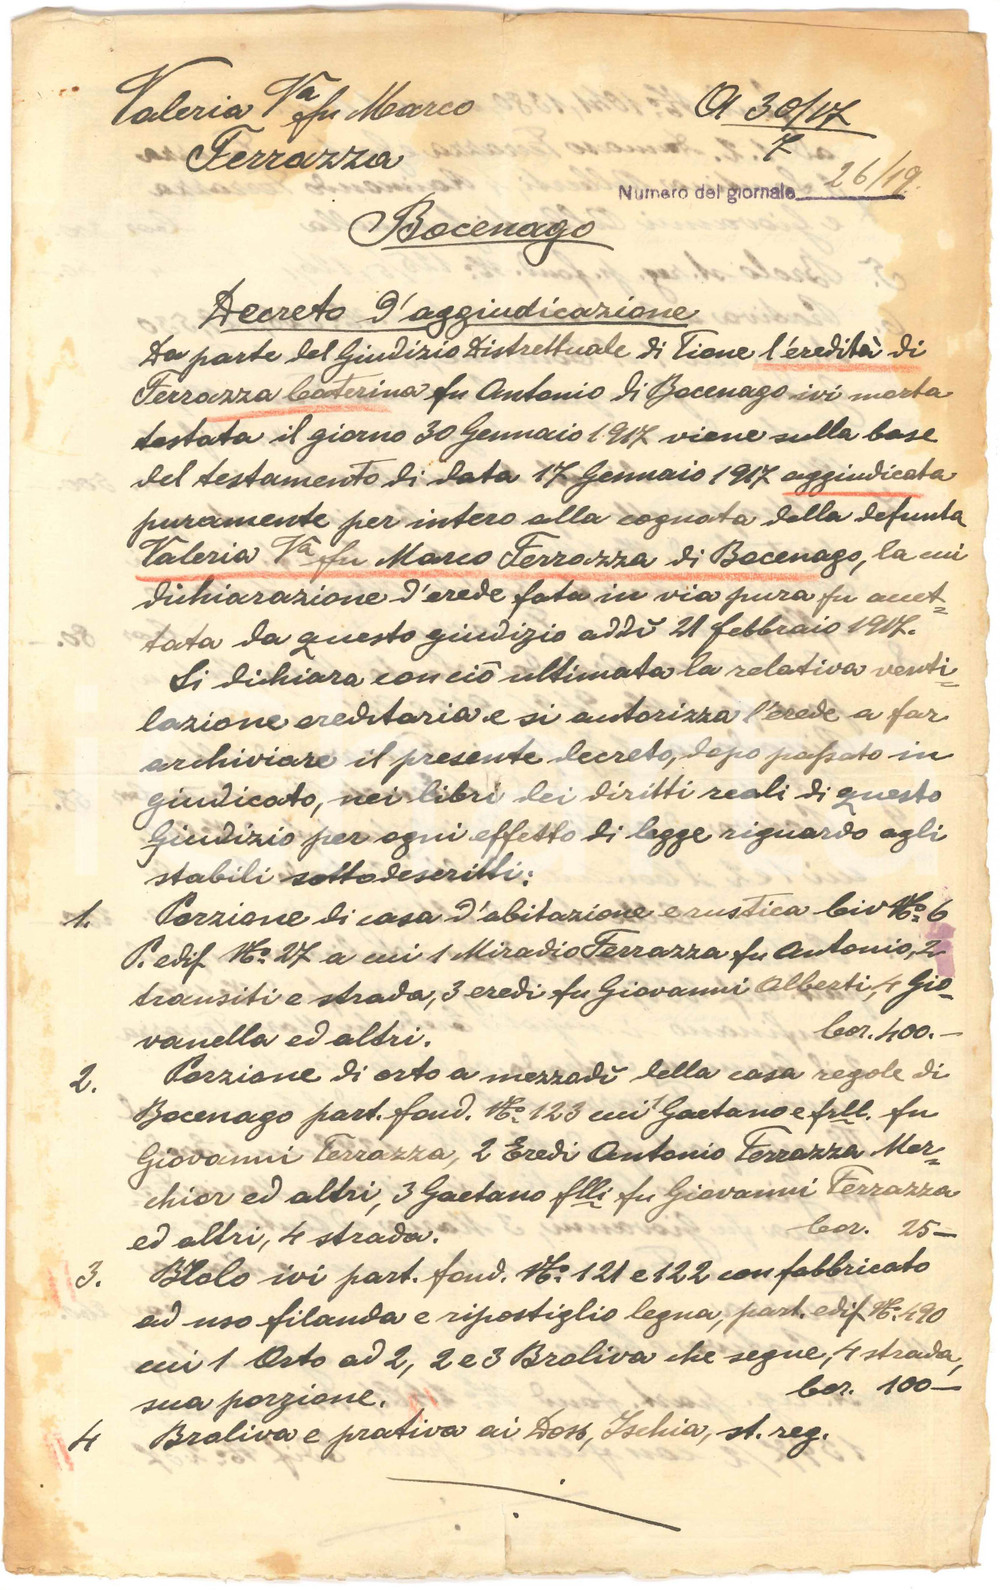 Valeria Va fu Marco
Ferrazza
A 30/17
7
Numero del giornale 26/19.
Bocenago
Decreto d'aggiudicazione
Da parte del Giudizio Distrettuale di Tione l'eredità di
Ferrazza Caterina fu Antonio di Bocenago ivi morta
testata il giorno 30 Gennaio 1917 viene sulla base
del testamento di data 17 Gennaio 1917 aggiudicata
puramente per intero alla cognata della defunta
Valeria Va fu Marco Ferrazza di Bocenago, la cui
dichiarazione d'erede fata in via pura fu accet=
tata da questo giudizio addì 21 febbraio 1917.
Si dichiara con ciò ultimata la relativa venti=
lazione ereditaria e si autorizza l'erede a far
archiviare il presente decreto, dopo passato in
giudicato, nei libri dei diritti reali di questo
Giudizio per ogni effetto di legge riguardo agli
stabili sottodescritti:
1. Porzione di casa d'abitazione e rustica Civ No. 6
P. edif. No. 27 a cui 1 Miradio Ferrazza fu Antonio, 2
transiti e strada, 3 eredi fu Giovanni Alberti, 4 Gio=
vanella ed altri. Cor. 400.—
2. Porzione di orto a mezzadì della casa regole di
Bocenago part. fond. No. 123 cui 1 Gaetano e frll. fu
Giovanni Ferrazza, 2 Eredi Antonio Ferrazza Mer=
chior ed altri, 3 Gaetano flli fu Giovanni Ferrazza
ed altri, 4 strada. Cor. 25—
3. Brolo ivi part. fond. No. 121 e 122 con fabbricato
ad uso filanda e ripostiglio legna, part. edif. No. 490
cui 1 Orto ad 2, 2 e 3 Braliva che segue, 4 strada,
sua porzione. Cor. 100—
4 Braliva e prativa ai Doss, Ischia, st. reg.